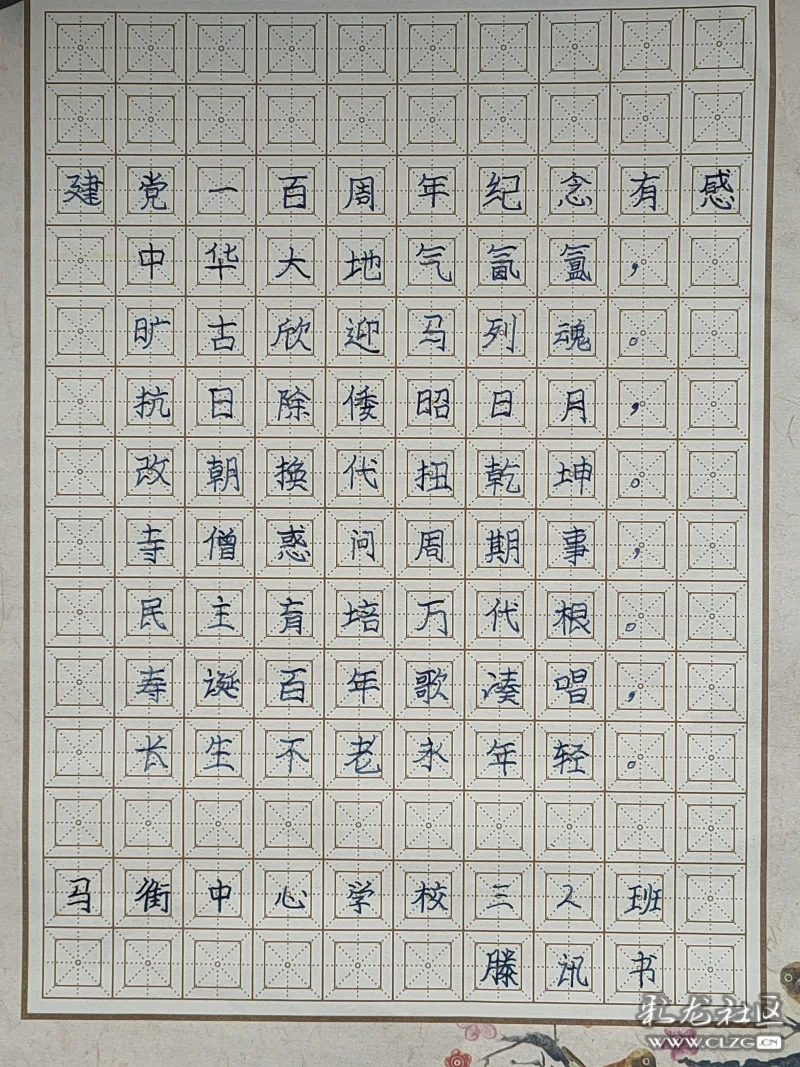 建党一百周年纪念有感
中华大地气氤氲，
旷古欣迎马列魂。
抗日除倭昭日月，
改朝换代扭乾坤。
寺僧惑问周期事，
民主育培万代根。
寿诞百年歌凑唱，
长生不老永年轻。
马街中心学校三2班
滕汛书
龙社区
WWW.CLZG.CN